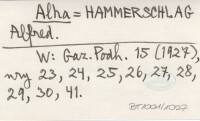 Alha = HAMMERSCHLAG
Alfred.
W: Gaz. Podh. 15 (1927),
nry 23, 24, 25, 26, 27, 28,
29, 30, 41.